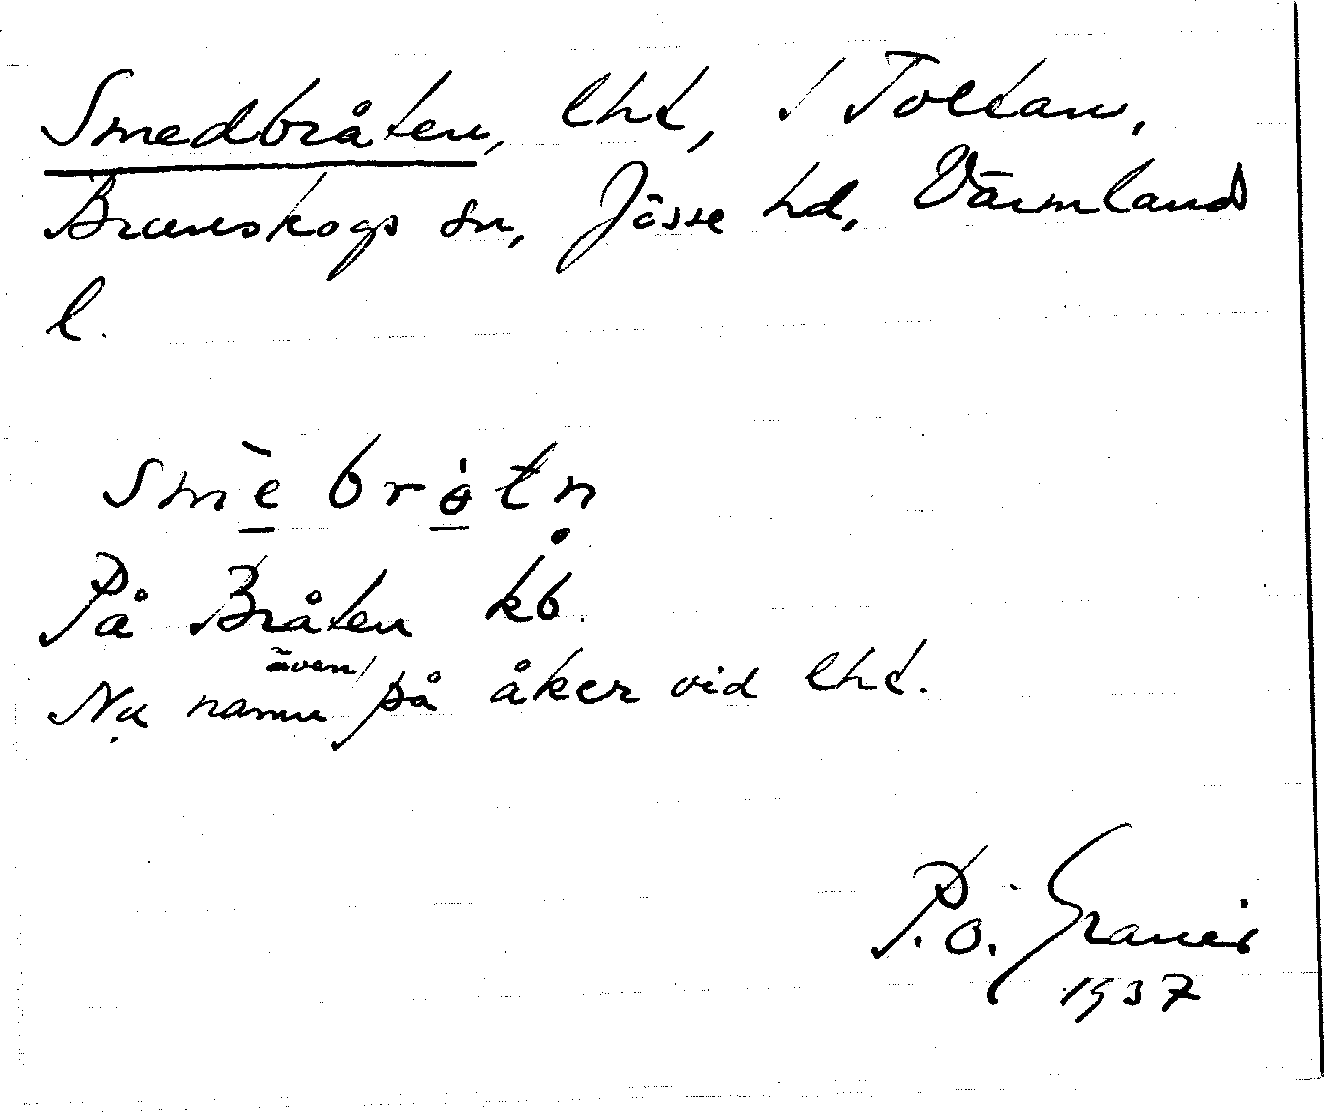 Smedbråten, lht, i Toltan,
Brunskogs sn, Jösse hd, Värmlands
l.
Smèbrɵ̀tn̥
På Bråten kb.
Nu namn även på åker vid lht.
P. O. Granér
1937